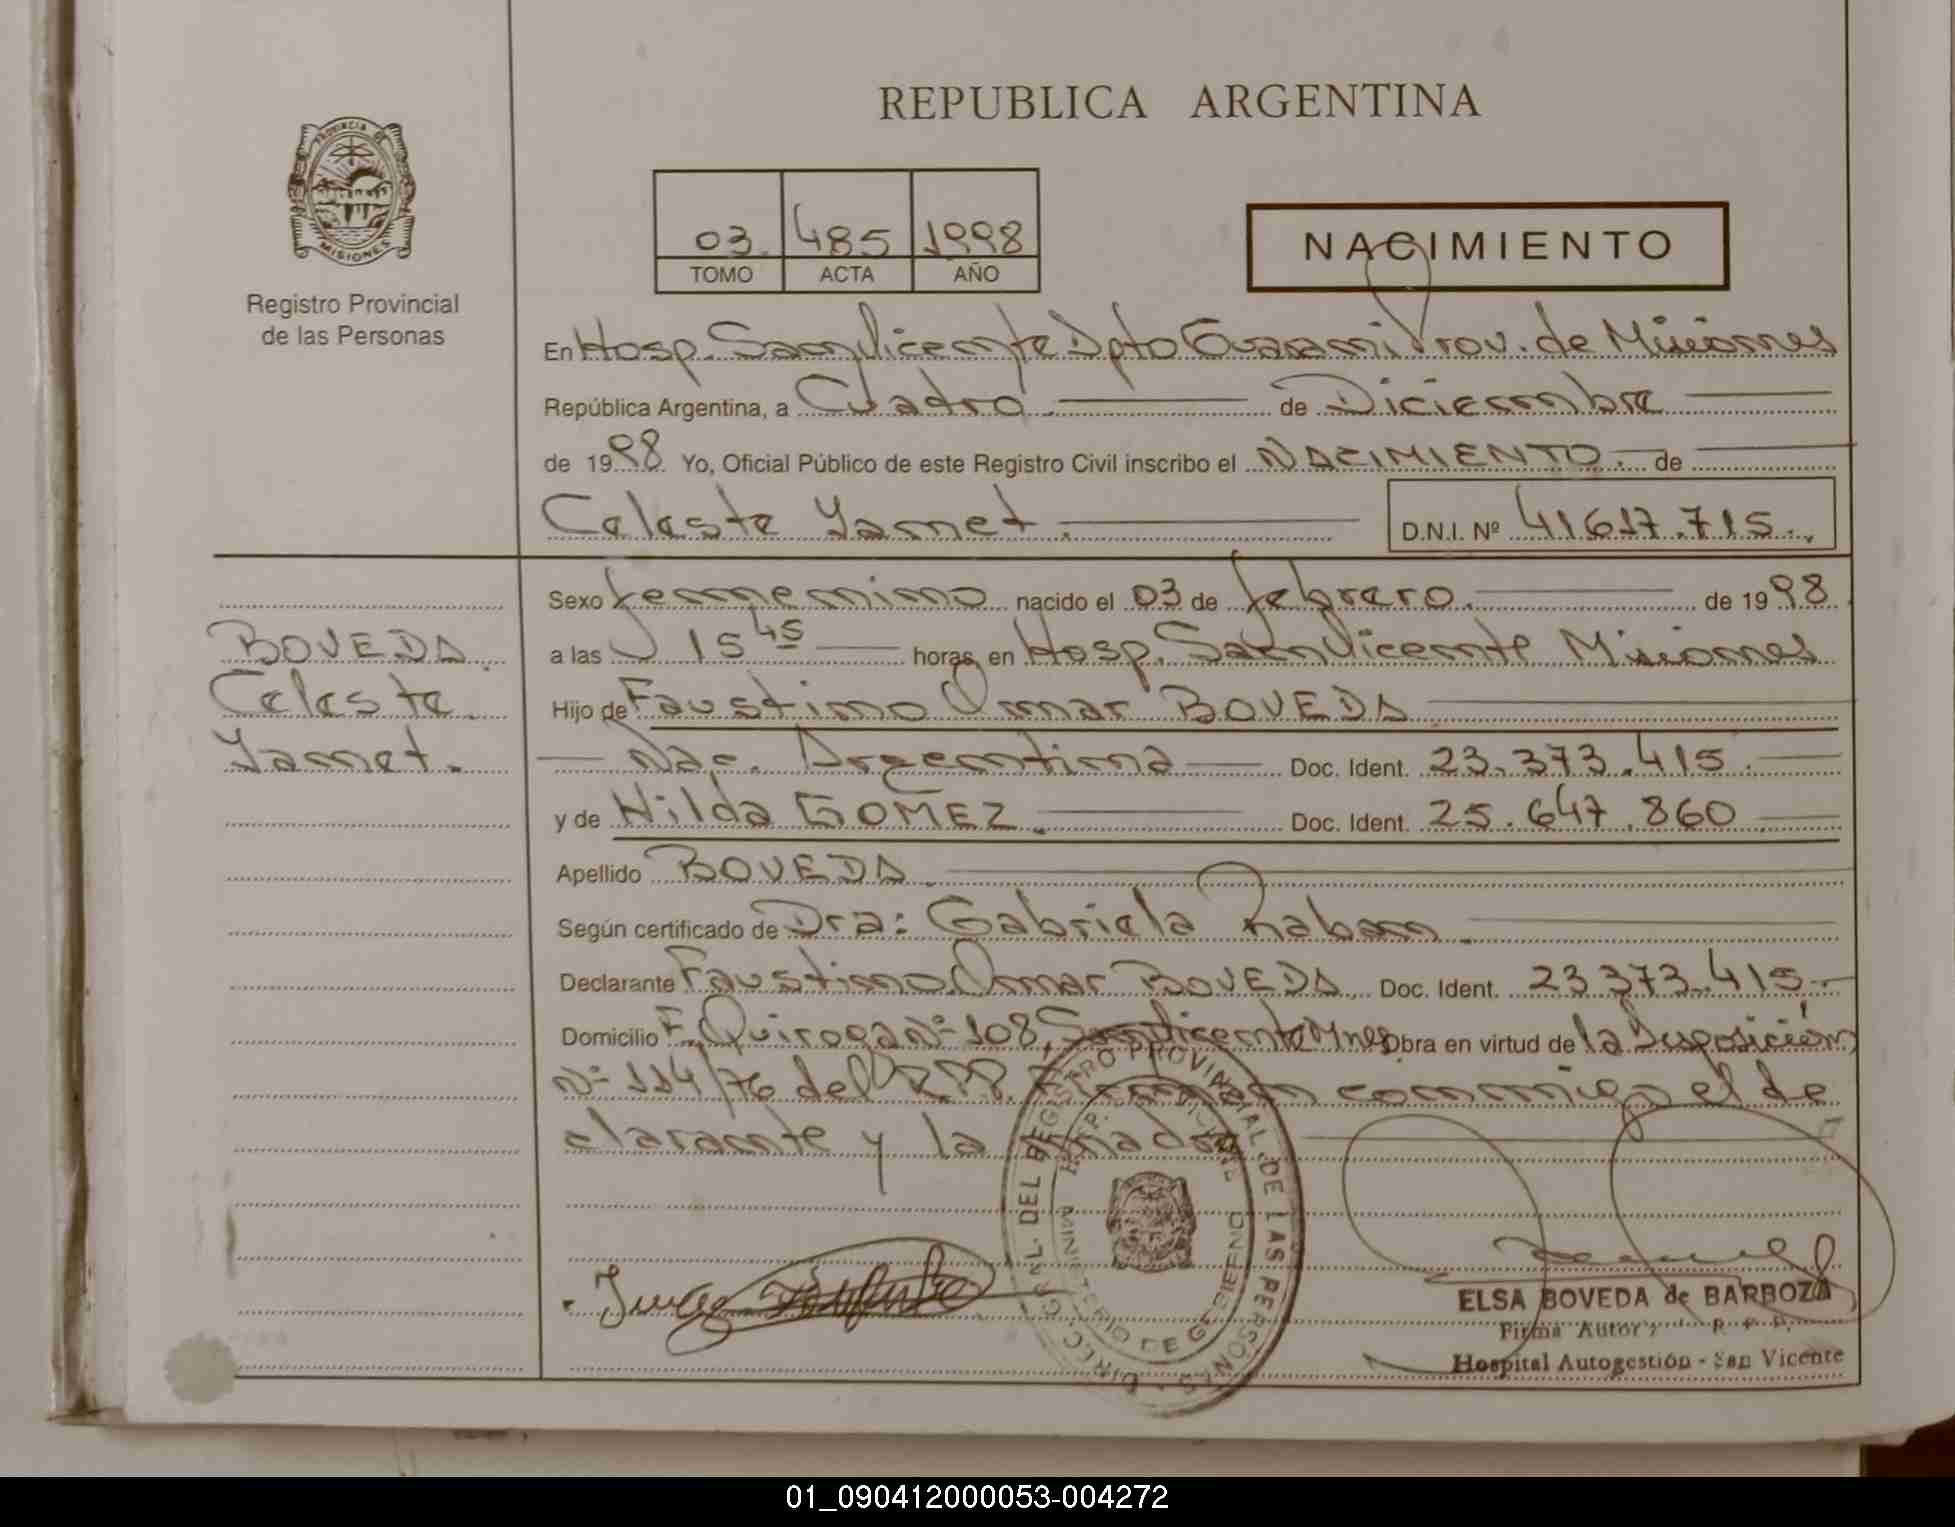 REPUBLICA ARGENTINA
PROVINCIA DE
MISIONES
Registro Provincial
de las Personas
03. 485 1998
TOMO ACTA AÑO
NACIMIENTO
En Hosp. San Vicente Dpto Guarani Prov. de Misiones
República Argentina, a Cuatro de Diciembre
de 1998. Yo, Oficial Público de este Registro Civil inscribo el NACIMIENTO. de
Celeste Yamet. D.N.I. Nº 41617.715.
Sexo femenino nacido el 03 de febrero. de 1998.
a las 15 45 horas, en Hosp. San Vicente Misiones
Hijo de Faustino Omar BOVEDA
Nac. Argentina Doc. Ident. 23.373.415.
y de Hilda GOMEZ. Doc. Ident. 25.647.860
Apellido BOVEDA.
Según certificado de Dra: Gabriela Raban.
Declarante Faustino Omar BOVEDA Doc. Ident. 23373.415.-
Domicilio F. Quiroga Nº 108, San Vicente Mnes Obra en virtud de la Disposición
Nº 114/76 del R.P.P. Firman conmigo el de
clarante y la
BOVEDA.
Celeste
Yamet.
DIREC. GRAL. DEL REGISTRO PROVINCIAL DE LAS PERSONAS
MINISTERIO DE GOBIERNO
HOSP. VICENTE
ELSA BOVEDA de BARBOZA
Firma Autor R. P. P.
Hospital Autogestión - San Vicente
01_090412000053-004272